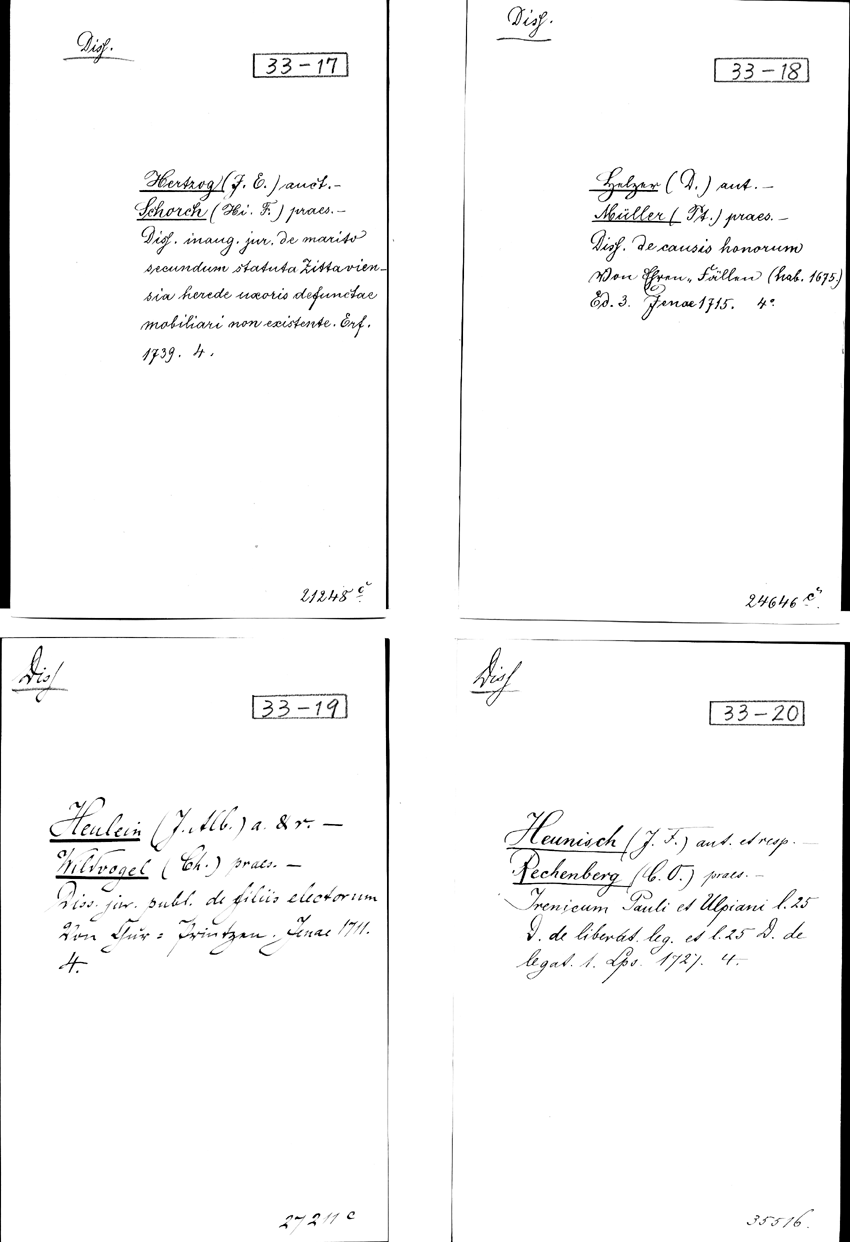 Diss.
33-17
Hertzog (J. E.) auct. –
Schorch (Hi. F.) praes. –
Diss. inaug. jur. de marito
secundum statuta Zittavien-
sia herede uxoris defunctae
mobiliari non existente. Erf.
1739. 4.
21248 c
Diss.
33-18
(D.) aut. –
Müller (Pt.) praes. –
Diss. de causis honorum
Von Ehren-Fällen (hab. 1675.)
Ed. 3. Jenae 1715. 4°
24646 c
Diss
33-19
Heulein (J. Alb.) a. & r. –
Wildvogel (Ch.) praes. –
Diss. jur. publ. de filiis electorum
Von Chur = Printzen. Jenae 1711.
4.
27211 c
Diss
33-20
Heunisch (J. F.) aut. et resp. –
Rechenberg (C. O.) praes. –
Irenicum Pauli et Ulpiani l. 25
D. de liberat. leg. et l. 25 D. de
legat. 1. Lps. 1727. 4.
35516.